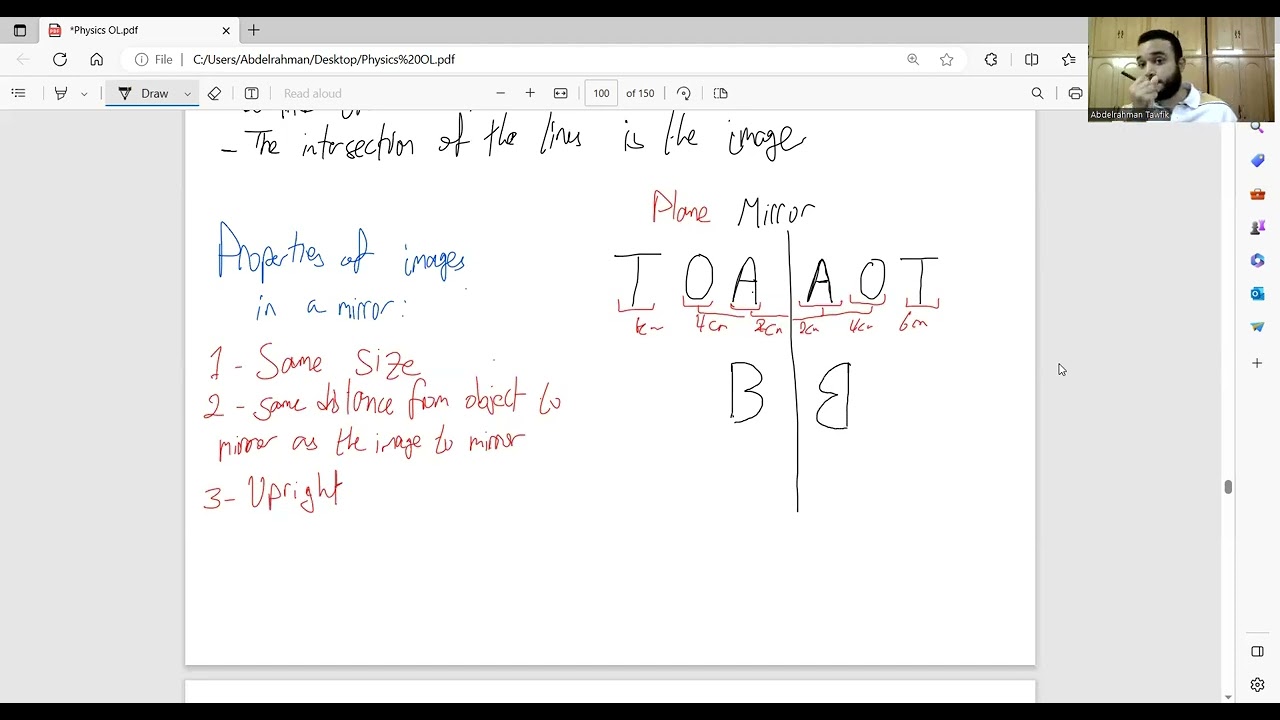 *Physics OL.pdf
File
C:/Users/Abdelrahman/Desktop/Physics%20OL.pdf
Draw
Read aloud
100 of 150
Abdelrahman Tawfik
- The intersection of the lines is the image
Plane Mirror
Properties of images
in a mirror:
T O A A O T
4cm 2cm 2cm 4cm
B B
1 - Same Size
2 - same distance from object to
mirror as the image to mirror
3 - Upright